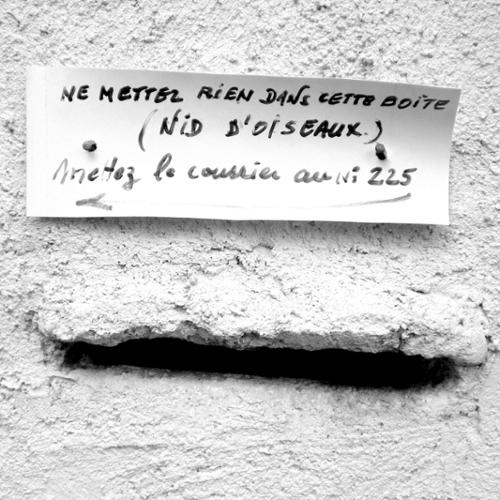 NE METTEZ RIEN DANS CETTE BOÎTE
(NID D'OISEAUX.)
Mettez le courrier au N: 225